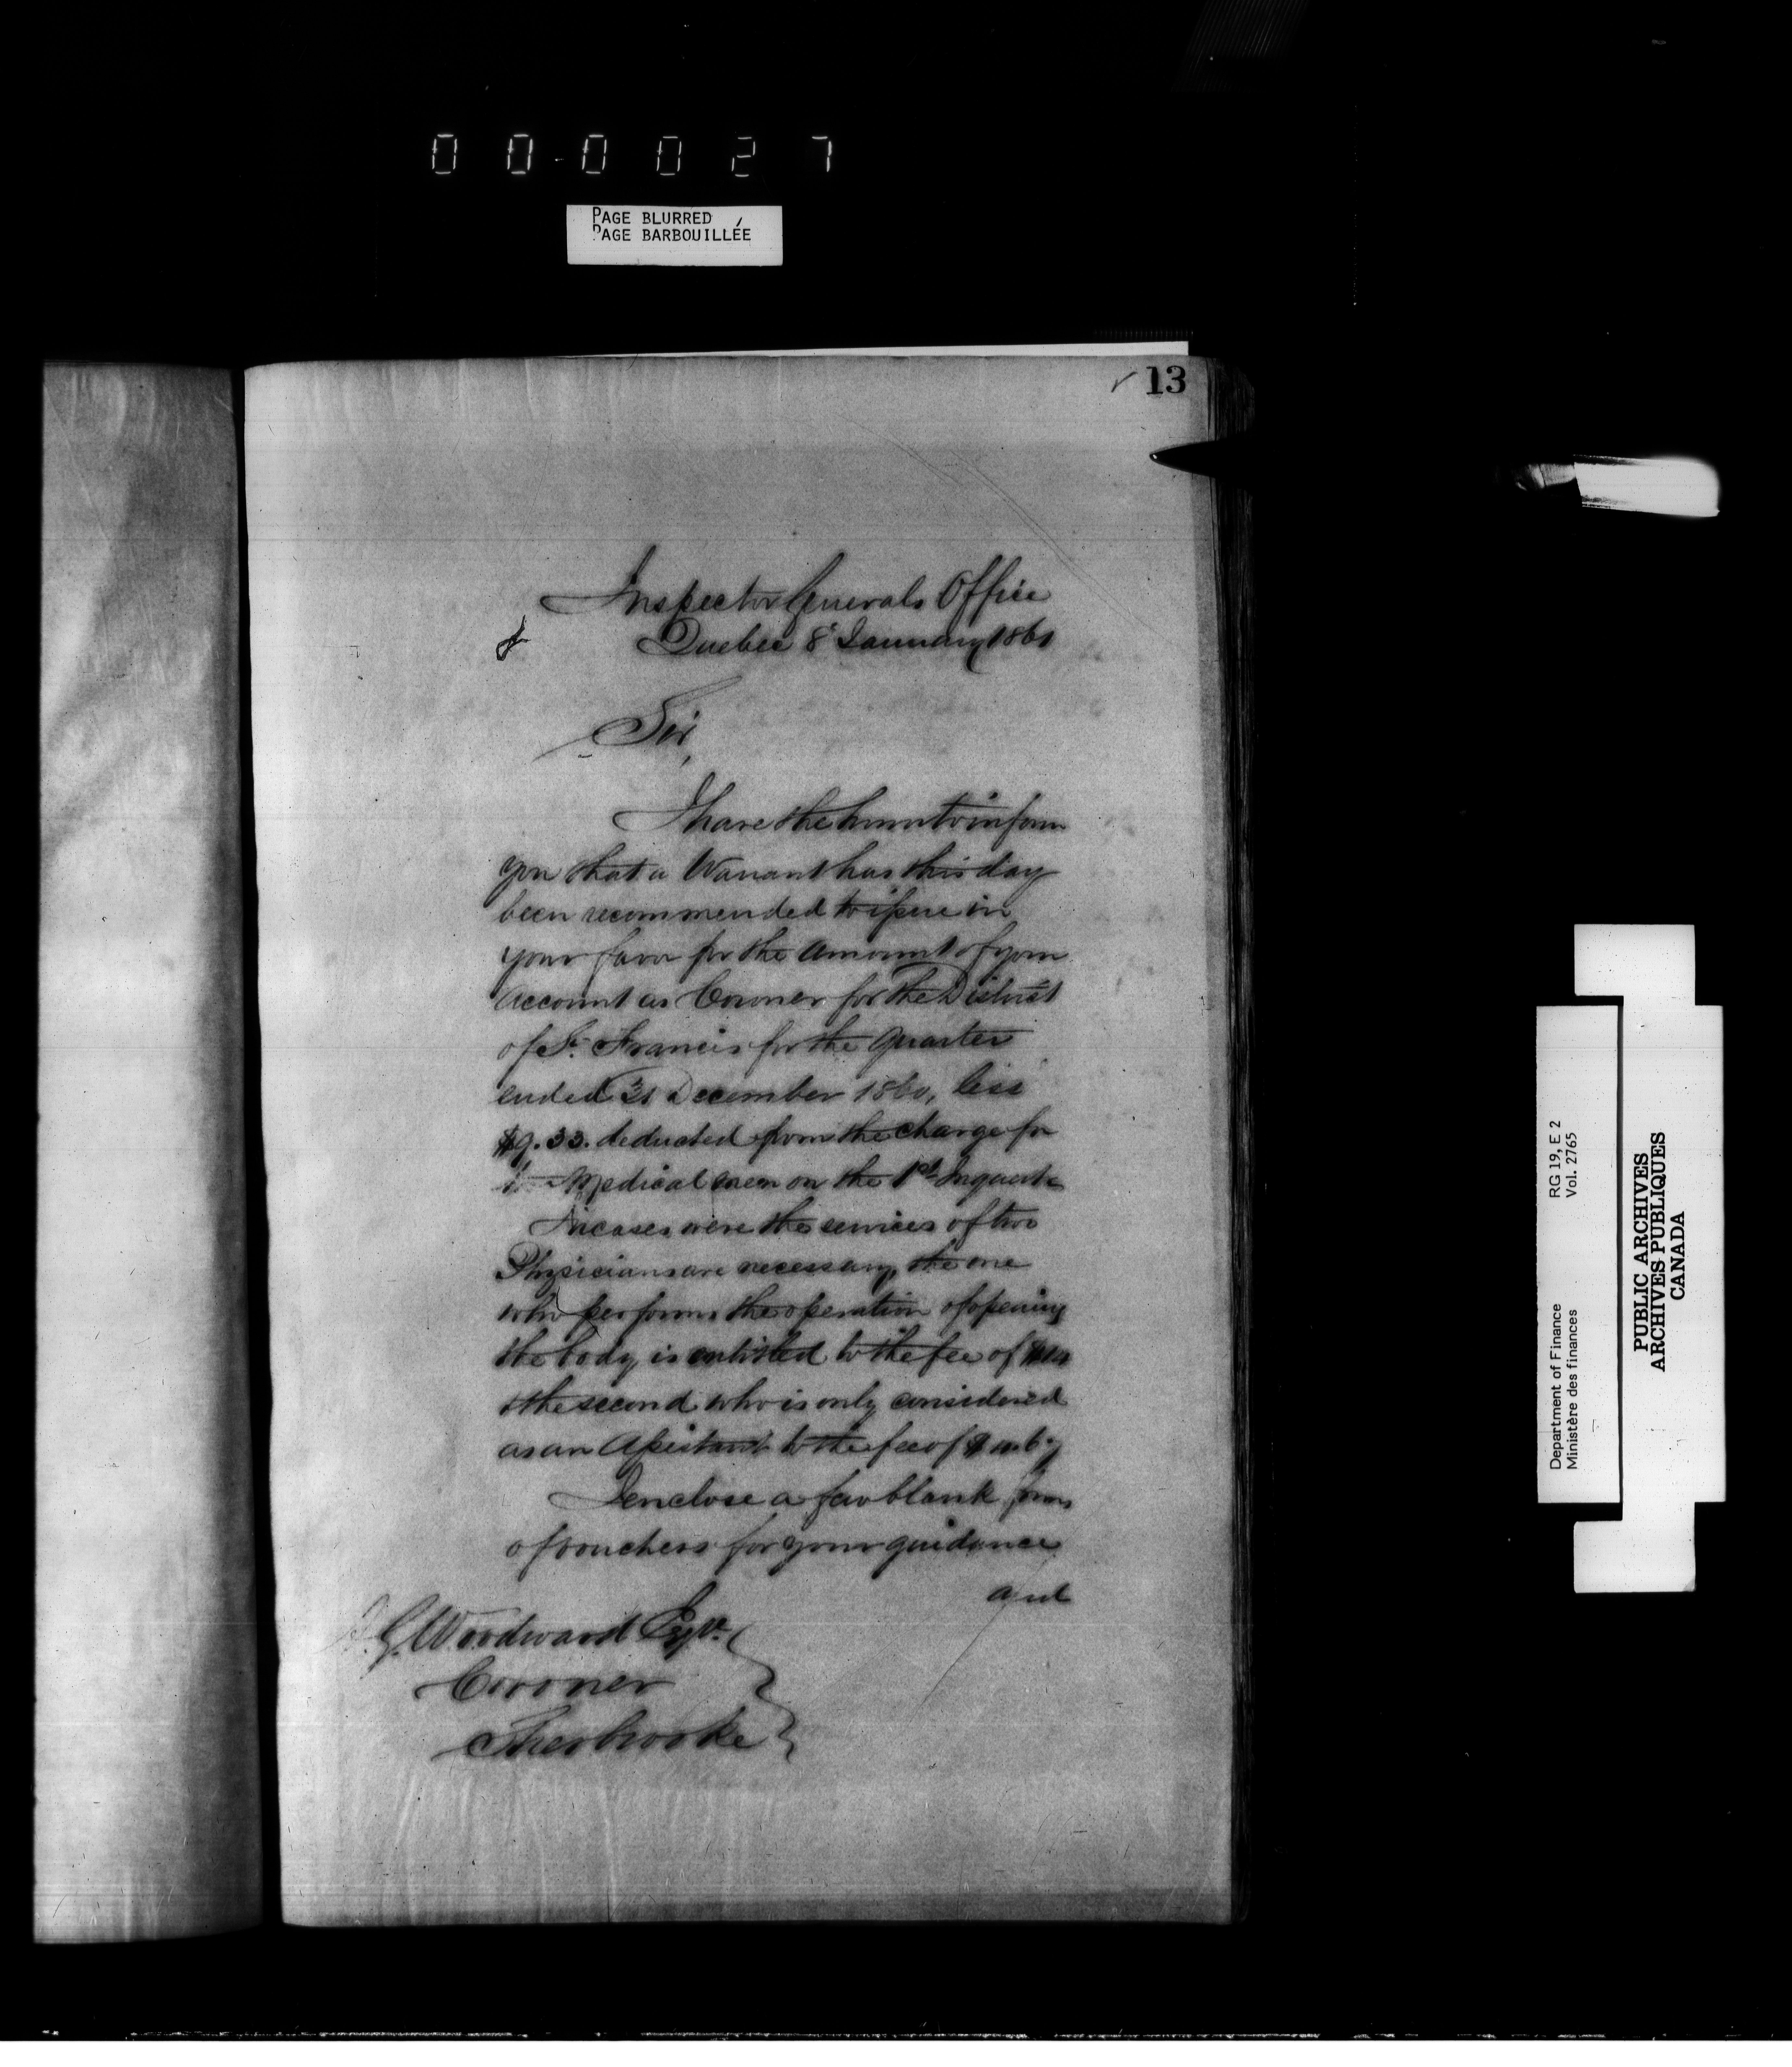 00-0027
PAGE BLURRED
PAGE BARBOUILLÉE
13
Inspector Generals Office
Quebec 8 January 1861
Sir,
I have the honor to inform
you that a Warrant has this day
been recommended to issue in
your favor for the Amount of your
Account as Coroner for the District
of St. Francis for the Quarter
ended 31 December 1860, less
$9.33. deducted from the charge for
Medical men on the 1st Inquest
In cases were the services of two
Physicians are necessary, the one
who performs the operation of opening
the body is entitled to the fee of
& the second who is only considered
as an Assistant to the fee of $
I enclose a few blank forms
of vouchers for your guidance
and
G. Woodward Esqr.
Coroner
Sherbrooke
Department of Finance RG 19, E 2
Ministère des finances Vol. 2765
PUBLIC ARCHIVES
ARCHIVES PUBLIQUES
CANADA